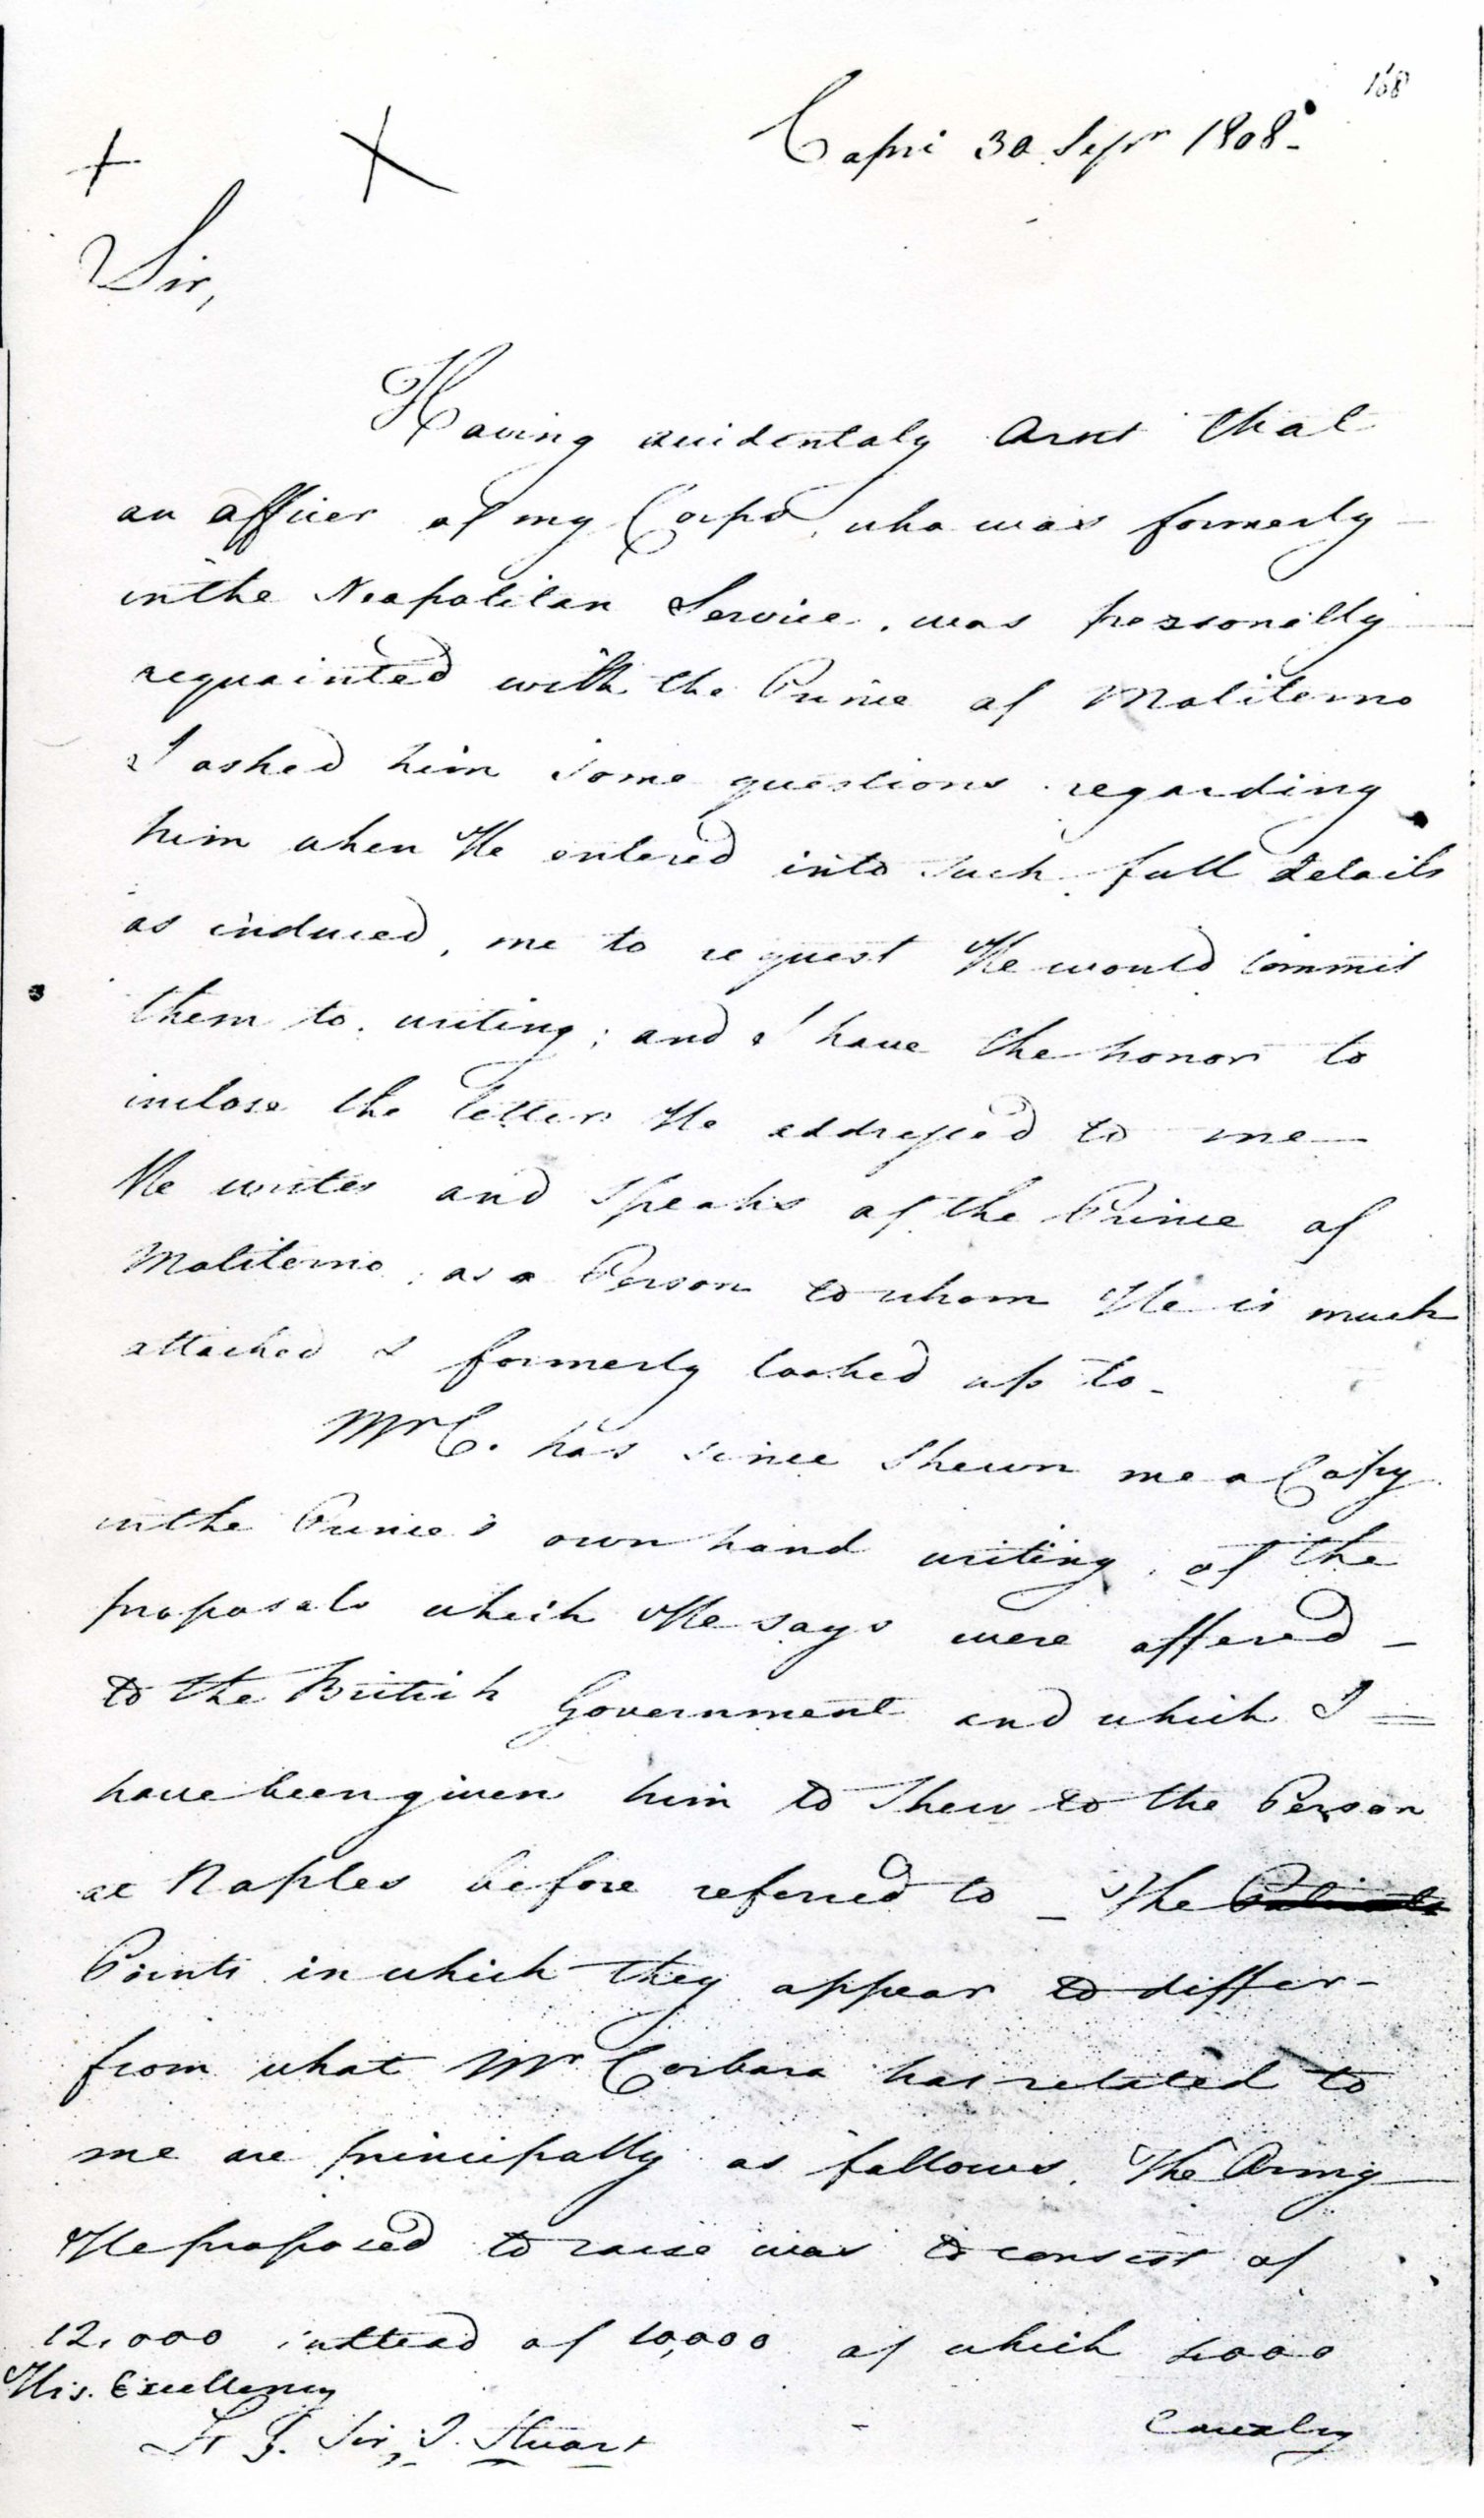 168
Capri 30 Sepr 1808-
Sir,
Having accidentaly learnt that
an officer of my Corps, who was formerly
in the Neapolitan Service, was personally
acquainted with the Prince of Moliterno
I asked him some questions regarding
him when He entered into such full details
as induced, me to request He would commit
them to writing; and I have the honor to
inclose the letter He addressed to me —
He writes and speaks of the Prince of
Moliterno, as a Person to whom He is much
attached & formerly looked up to -
Mr C. has since shewn me a Copy
in the Prince's own hand writing, of the
proposals which He says were offered -
to the British Government and which I =
have been given him to shew to the Person
at Naples before referred to _ The
Points in which they appear to differ -
from what Mr Corbara has related to
me are principally as follows, The Army
He proposed to raise was to consist of
12,000 instead of 10,000 of which
Cavalry
His Excellency
Lt G. Sir J. Stuart